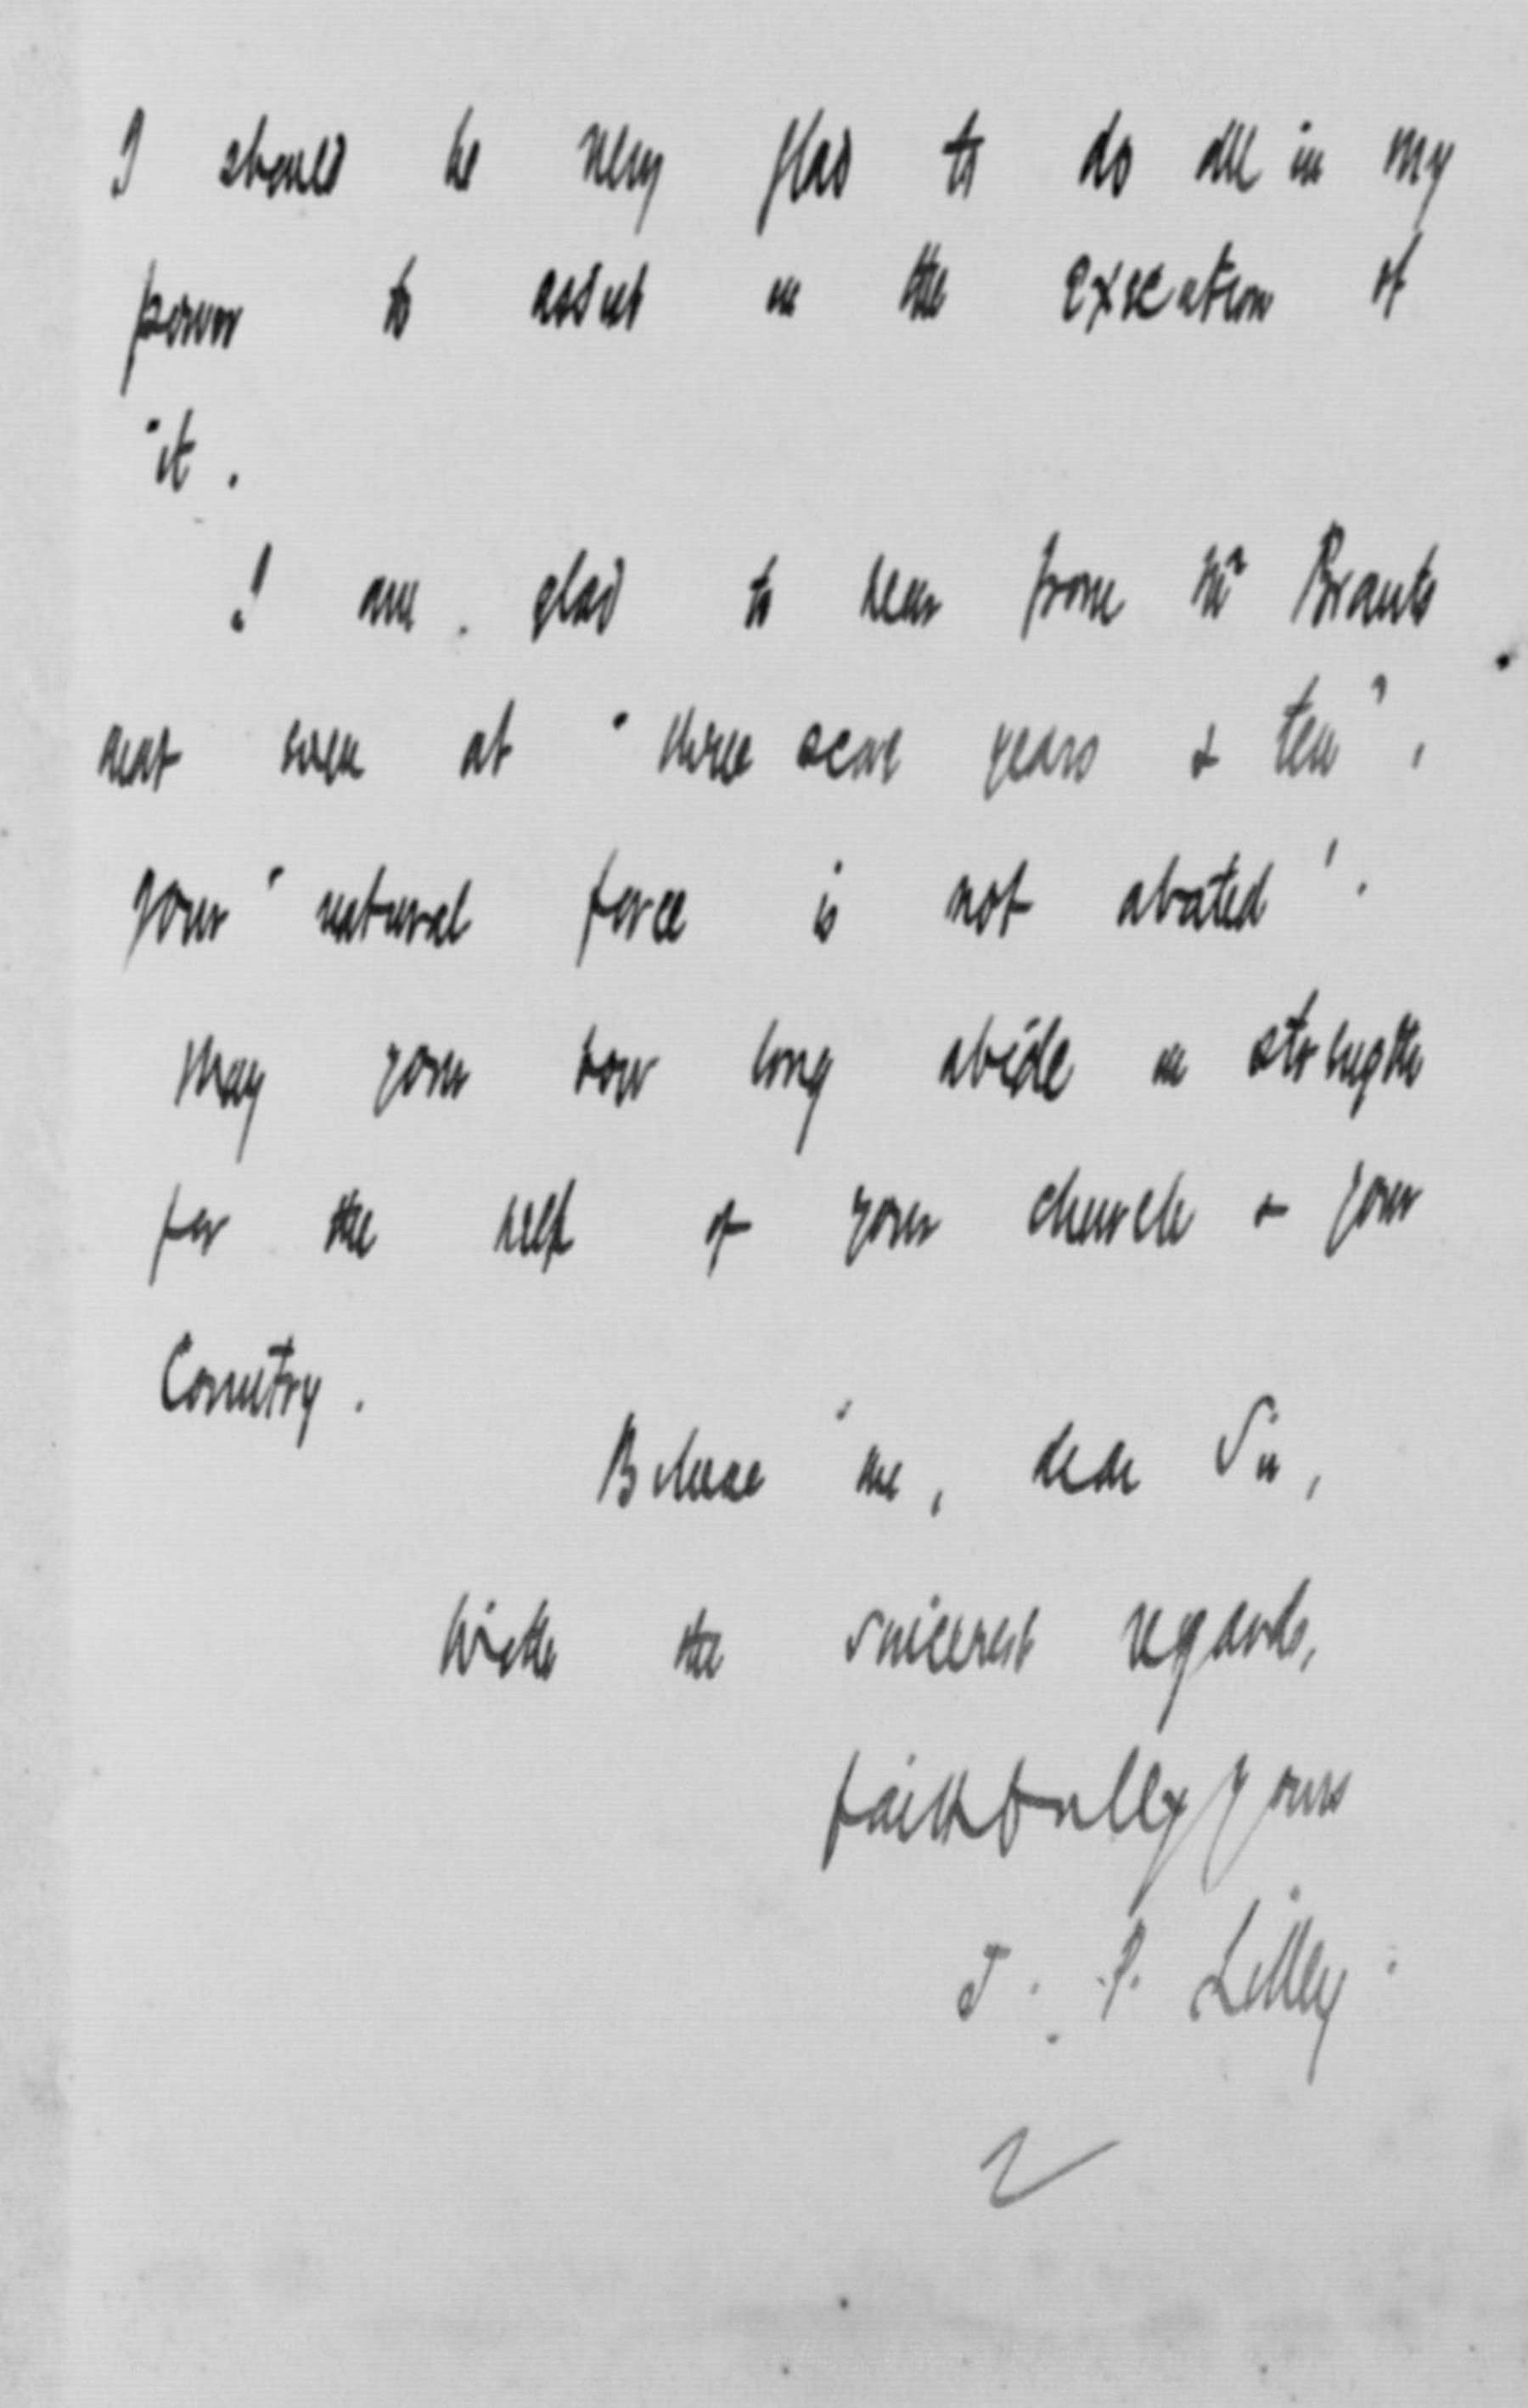 I should be very glad to do all in my
power to assist in the execution of
it.
I am glad to hear from Mr Brants
that even at "three score years & ten",
your "natural force is not abated".
May your bow long abide in strength
for the help of your church & your
Country.
Believe me, dear Sir,
With the sincerest regards,
faithfully yours
J. P. Lilley